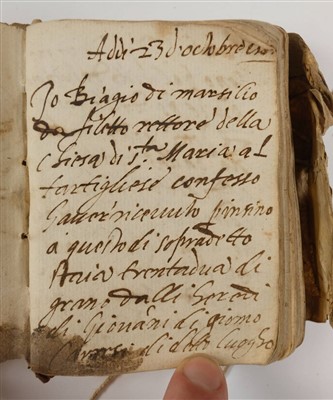 Addi 23 d octobre
Io Biagio di marsilio
da filetto rettore della
Chiesa di S.ta Maria al
fartigliere confesso
haver ricevuto pinsino
a questo di sopradetto
staia trentadua di
grano dalli heredi
di Giovanni di giomo
di detto luogho